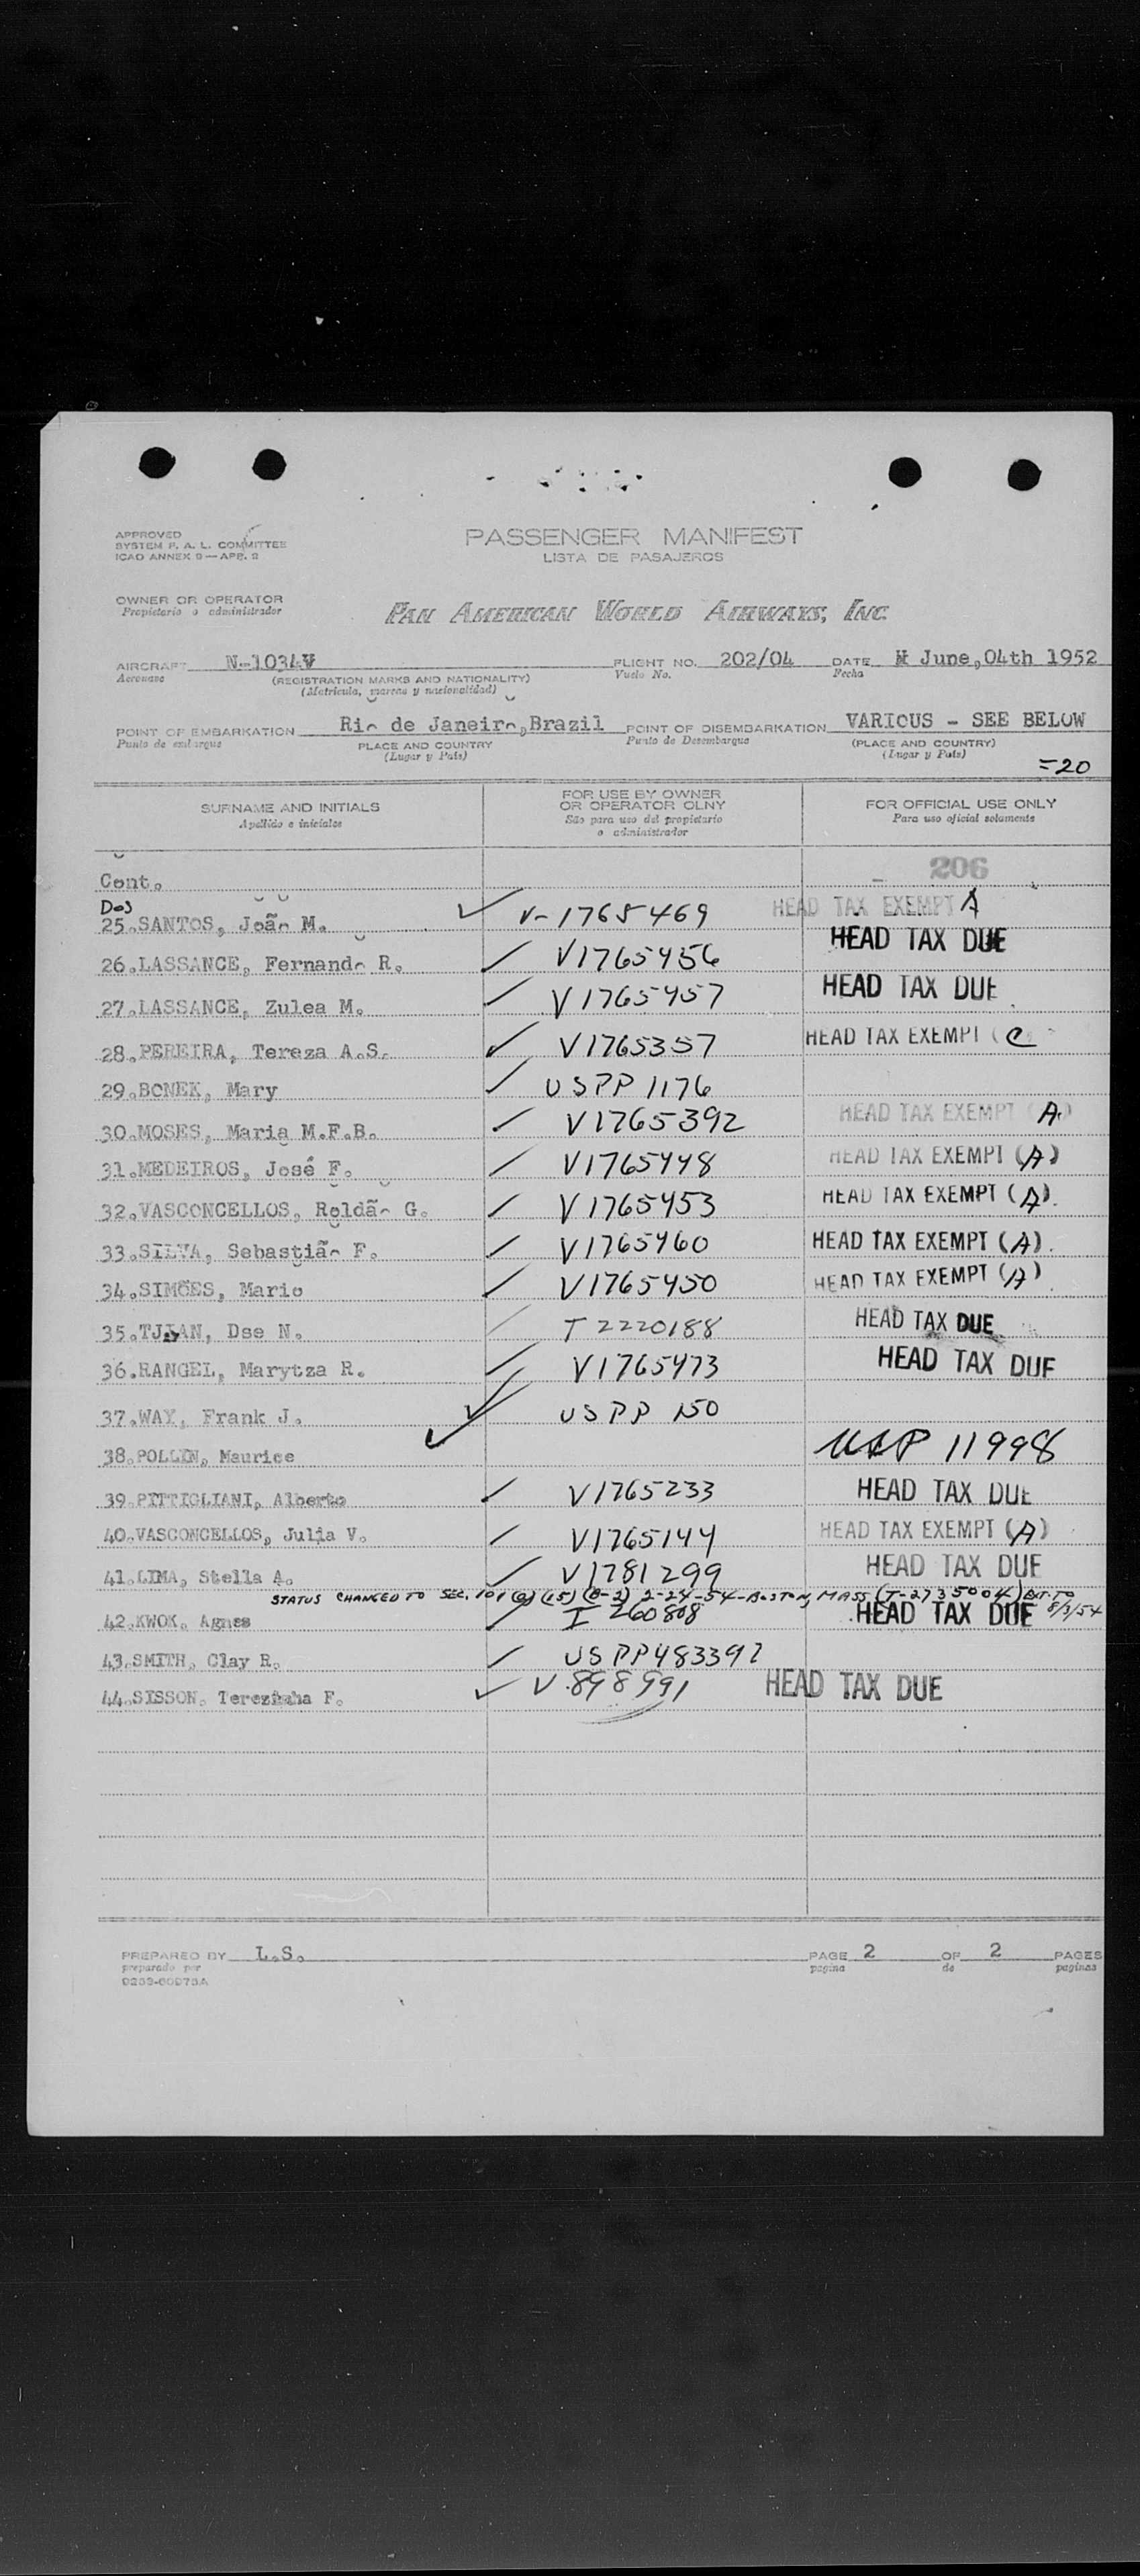 APPROVED
SYSTEM F. A. L. COMMITTEE
ICAO ANNEX 9 — APP. 2
PASSENGER MANIFEST
LISTA DE PASAJEROS
OWNER OR OPERATOR
Propietario o administrador
PAN AMERICAN WORLD AIRWAYS, INC
AIRCRAFT N-1034V FLIGHT NO. 202/04 DATE June,04th 1952
Aeronave (REGISTRATION MARKS AND NATIONALITY) Vuelo No. Fecha
(Matrícula, marcas y nacionalidad)
POINT OF EMBARKATION Rio de Janeiro,Brazil POINT OF DISEMBARKATION VARIOUS - SEE BELOW
Punto de embarque PLACE AND COUNTRY Punto de Desembarque (PLACE AND COUNTRY)
(Lugar y País) (Lugar y País)
=20
SURNAME AND INITIALS FOR USE BY OWNER OR OPERATOR OLNY FOR OFFICIAL USE ONLY
Apellido e iniciales São para uso del propietario o administrador Para uso oficial solamente
Cont. 206
Dos
25.SANTOS, João M. V-1765469 HEAD TAX EXEMPT A
26.LASSANCE, Fernando R. V1765456 HEAD TAX DUE
27.LASSANCE, Zulea M. V1765457 HEAD TAX DUE
28.PEREIRA, Tereza A.S. V1765357 HEAD TAX EXEMPT (C
29.BONEK, Mary USPP 1176
30.MOSES, Maria M.F.B. V1765392 HEAD TAX EXEMPT (A)
31.MEDEIROS, José F. V1765448 HEAD TAX EXEMPT (A)
32.VASCONCELLOS, Roldão G. V1765453 HEAD TAX EXEMPT (A).
33.SILVA, Sebastião F. V1765460 HEAD TAX EXEMPT (A).
34.SIMÕES, Mario V1765450 HEAD TAX EXEMPT (A)
35.TJIAN, Dse N. T 2220188 HEAD TAX DUE
36.RANGEL, Marytza R. V1765473 HEAD TAX DUE
37.WAY, Frank J. USPP 150
38.POLLIN, Maurice 11998
39.PITTIGLIANI, Alberto V1765233 HEAD TAX DUE
40.VASCONCELLOS, Julia V. V1765144 HEAD TAX EXEMPT (A)
41.LIMA, Stella A. V1781299 HEAD TAX DUE
STATUS CHANGED TO SEC. 101 (a) (15) 2-24-54-BOSTON, MASS (T-2735004) EXT. TO 8/3/54
42.KWOK, Agnes I 260808 HEAD TAX DUE
43.SMITH, Clay R. USPP483392
44.SISSON, Terezinha F. V.898991 HEAD TAX DUE
PREPARED BY L.S. PAGE 2 OF 2 PAGES
preparado por pagina de paginas